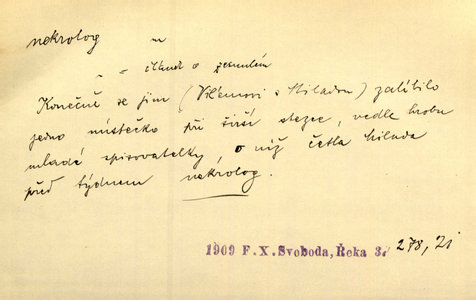 nekrolog m
článek o zemřelém
Konečně se jim (Vilémovi s Miladou) zalíbilo
jedno místečko při širší stezce, vedle hrobu
mladé spisovatelky, o níž četla Milada
před týdnem nekrolog.
1909 F. X. Svoboda, Řeka 3. 278, Zi